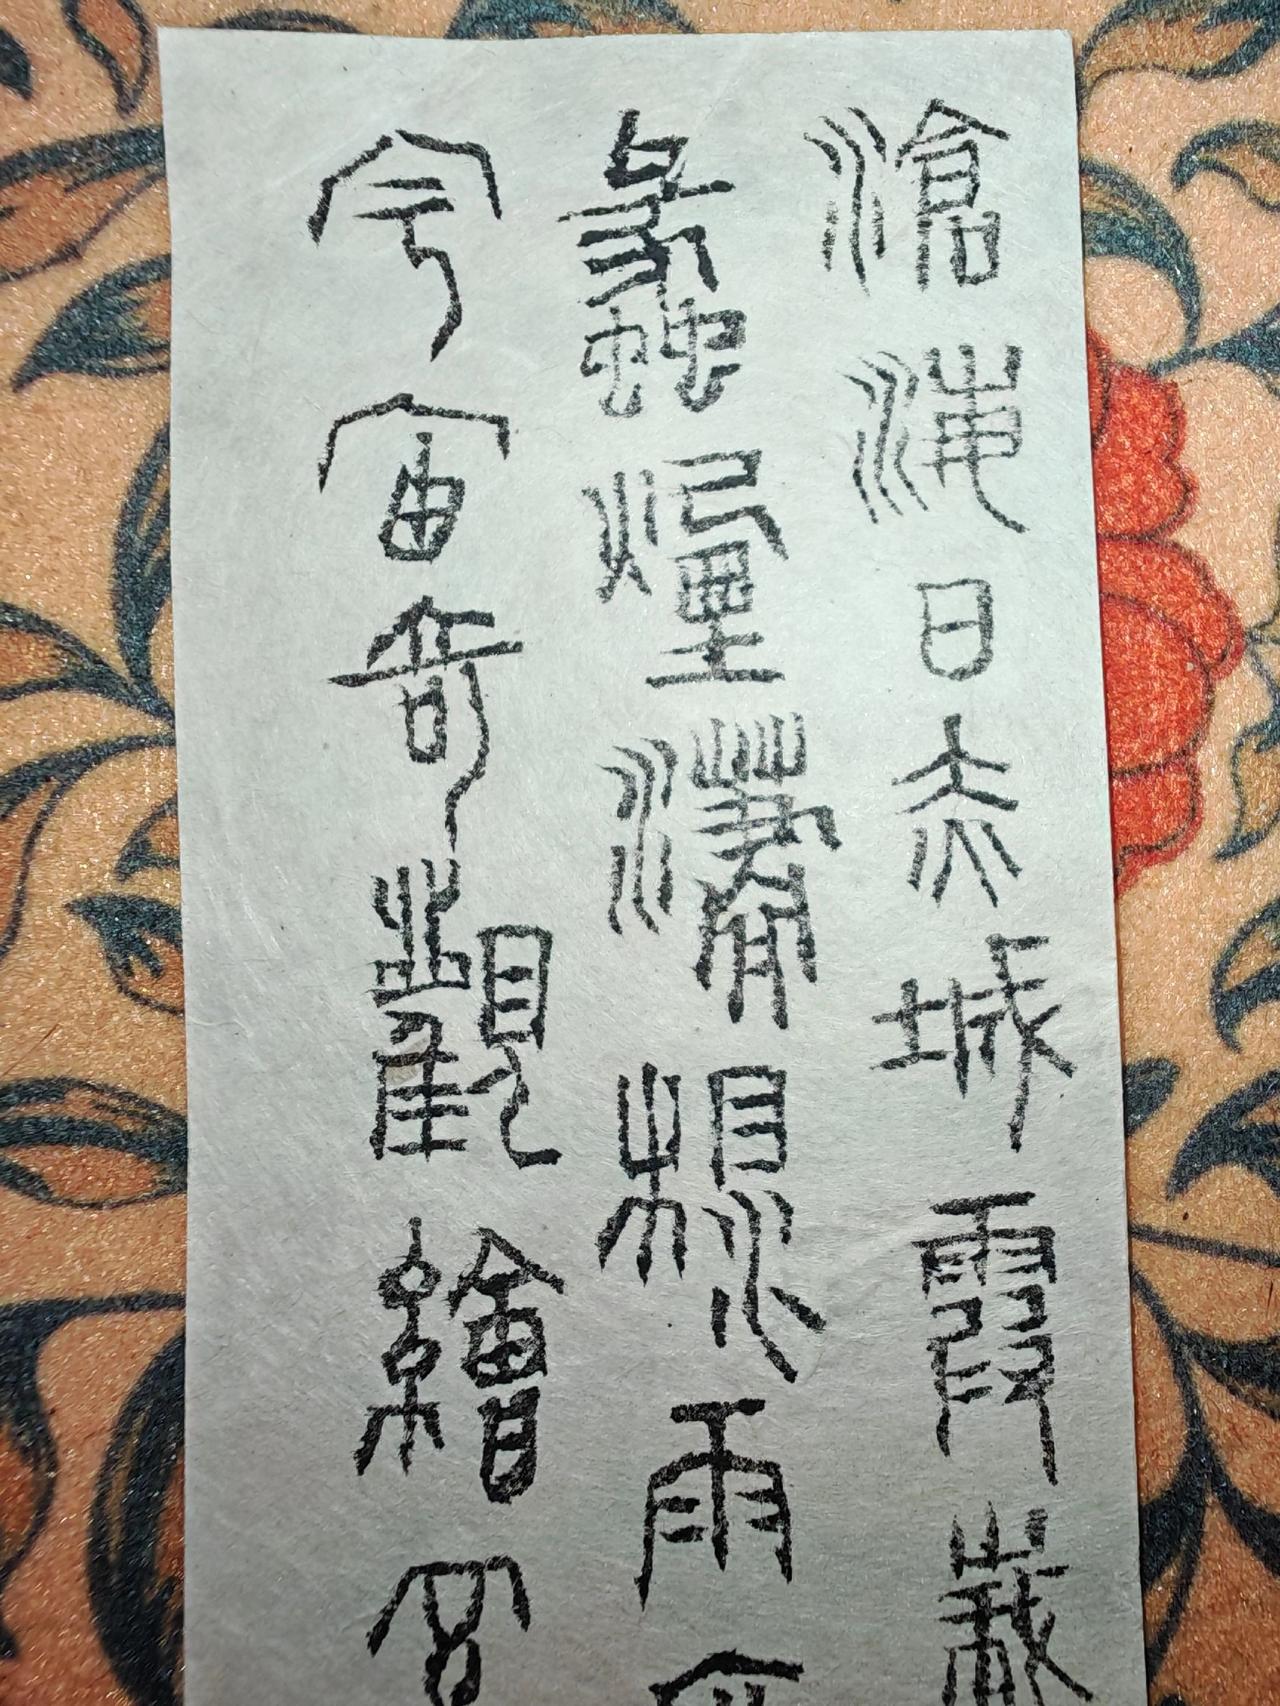 滄海日赤城霞峩
蠡煙瀟湘雨
宇宙奇觀繪